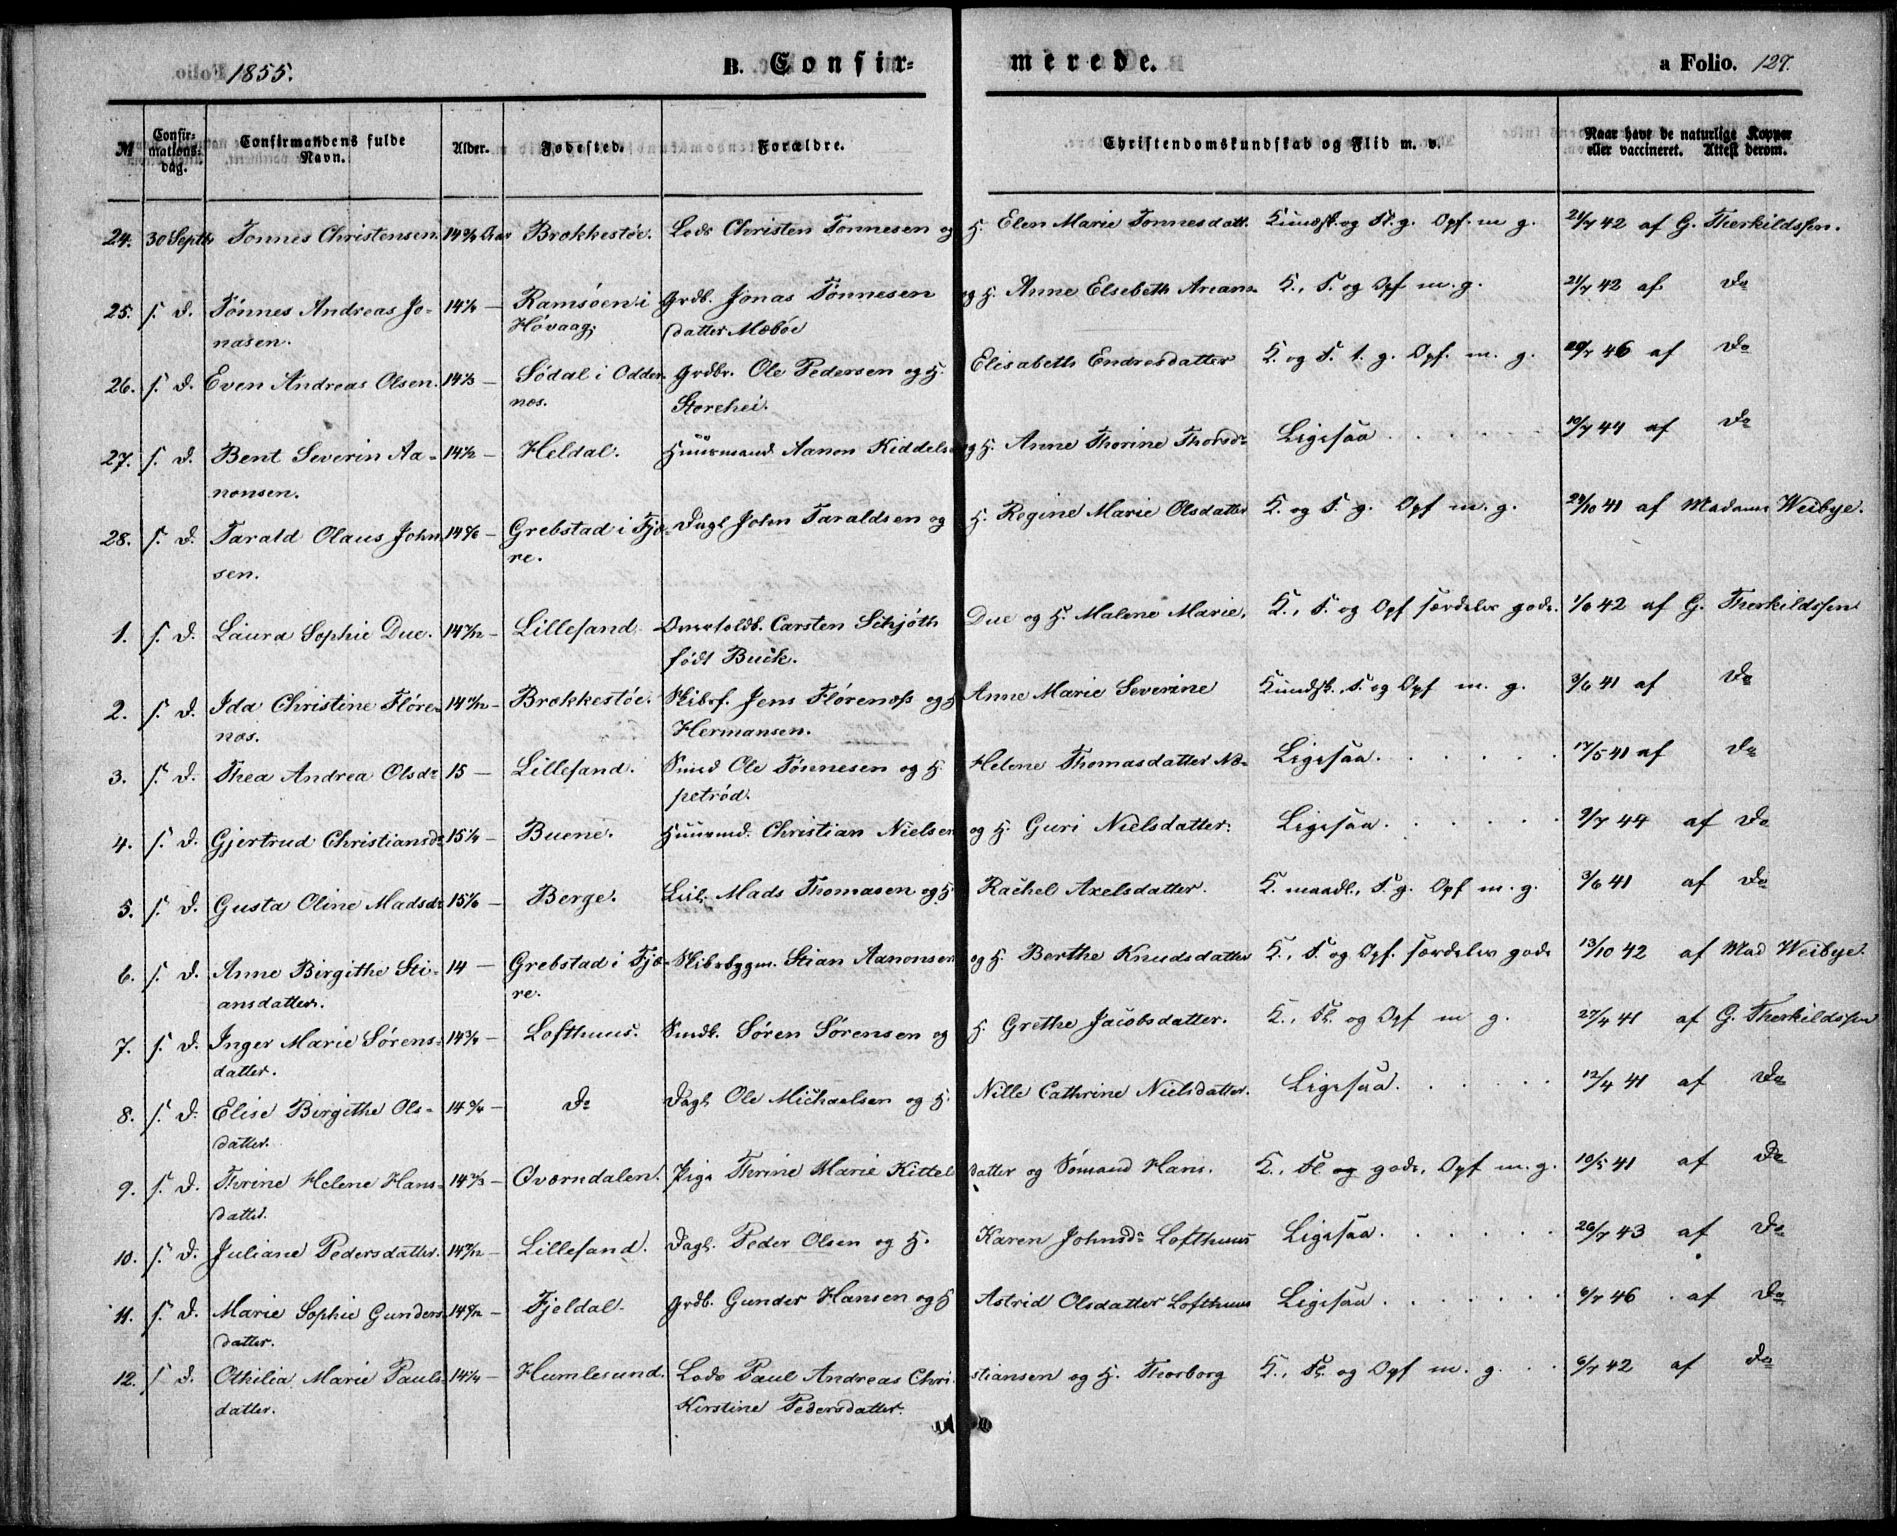 1855. B. Confir= merede. a Folio. 127.
№ Confir=mations=dag. Confirmandens fulde Navn. Alder. Fødested. Forældre. Christendomskundskab og Flid m. v. Naar havt de naturlige Kopper eller vaccineret. Attest derom.
24. 30 Septb Tønnes Christensen. Brækkestøe. Lods Christen Tønnesen og H. Elen Marie Tønnesdatt. Kundsk. og Fl. g. Opf. m g. 21/7 42 af G. Therkildssen.
25. s. D. Tønnes Andreas Jo- 14¼ – Ramsøen i Grdb. Jonas Tønnesen og H. Anne Elsebeth K., F. og Opf m. g. 21/7 42 af Do
nasen. Høvaag; datter Mæbøe
26. s. D. Even Andreas Olsen. 14⅓ – Sødal i Odder- Grdbr. Ole Pedersen og H. Elisabeth Endresdatter K. og F. t. g. Opf. m. g. 20/7 46 af Do
nes. Storehei.
27. s. D. Bent Severin Aa- 14½ – Heldal. Huusmand Aanon Kiddelsen og H. Anne Thorine Thorsdr Ligesaa . . . . . 10/7 44 af Do
nonsen.
28. s. D. Tarald Olaus John- – Grebstad i Fjæ- Dagl John Taraldsen og H. Regine Marie Olsdatter K. og F. g. Opf m. g. 23/10 41 af Madame Weibye.
sen. re.
1. s. D. Laura Sophie Due. – Lillesand. Overtoldb. Carsten Schjøth Due og H. Malene Marie, K., F. og Opf særdeles gode. 1/6 42 af G. Therkildssen
født Buck.
2. s. D. Ida Christine Fløre- – Brækkestøe. Skibsf. Jens Flørenæss og H Anne Marie Severine Kundsk., F. og Opf m. g. 3/6 41 af Do
næs. Hermansen.
3. s. D. Thea Andrea Olsdr 15 – Lillesand. Smed Ole Tønnesen og H Helene Thomasdatter Næ- Ligesaa. . . . . . 17/5 41 af Do
petrød.
4. s. D. Gjertrud Christiansdr 15¼ – Buene. Huusmd. Christian Nielsen og H. Guri Nielsdatter. Ligesaa. . . . . . 9/7 44 af Do
5. s. D. Gusta Oline Madsdr – Berge. Leil. Mads Thomasen og H Rachel Axelsdatter. K. maadl., F. g. Opf m. g. 3/6 41 af Do
6. s. D. Anne Birgithe Sti- 14 – Grebstad i Fjæ- Skibsbygm. Stian Aanonsen og H. Berthe Knudsdatter K., F. og Opf. særdeles gode 13/10 42 af Mad Weibye.
ansdatter. re.
7. s. D. Inger Marie Sørens- 14¾ – Lofthuus. Smdb. Søren Sørensen og H. Grethe Jacobsdatter. K., Fl. og Opf m g. 27/4 41 af G. Therkildssen
datter.
8. s. D. Elise Birgithe Ols- 14¾ – Do Dagl. Ole Michaelsen og H. Nille Cathrine Nielsdatter. Ligesaa. . . . . . 12/4 41 af Do
datter.
9. s. D. Thrine Helene Hans- 14⅔ – Qværndalen. Pige Thrine Marie Kittels datter og Sømand Hans. K., Fl og gode, Opf m. g. 10/5 41 af Do
datter.
10. s. D. Juliane Pedersdatter. – Lillesand. Dagl. Peder Olsen og H. Karen Johnsdr Lofthuus Ligesaa. . . . . . 26/7 43 af Do
11. s. D. Marie Sophie Gunders- – Fjeldal. Grdb. Gunder Hansen og H Astrid Olsdatter Lofthuus Ligesaa. . . . . . 9/7 46 af Do
datter.
12. s. D. Othilia Marie Pauls- 14¼ – Humlesund. Lods Paul Andreas Chri- stiansen og H. Thorborg K., Fl. og Opf m. g. . . 6/7 42 af Do
datter. Kirstine Pedersdatter.